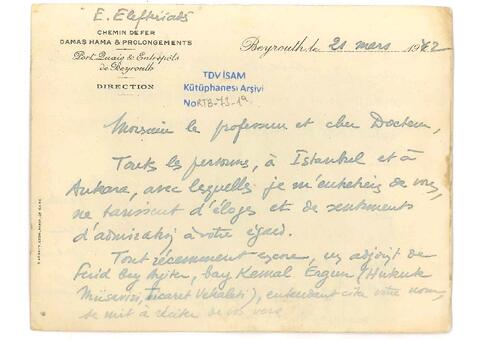 E. Eleftériadès
CHEMIN DE FER
DAMAS HAMA & PROLONGEMENTS
Port, Quais & Entrepôts
de Beyrouth
DIRECTION
Beyrouth, le 21 mars 1942
TDV İSAM
Kütüphanesi Arşivi
No RTB-73-19
Monsieur le professeur et cher Docteur,
Toutes les personnes, à Istanbul et à
Ankara, avec lesquelles je m'entretiens de vous,
ne tarissent d'éloges et de sentiments
d'admiration à votre égard.
Tout récemment encore, un adjoint de
Férid bey, bay Kemal Ergun (Hukuk
Müşaviri, Ticaret Vekaleti), entendant citer votre nom,
se mit à réciter de vos vers